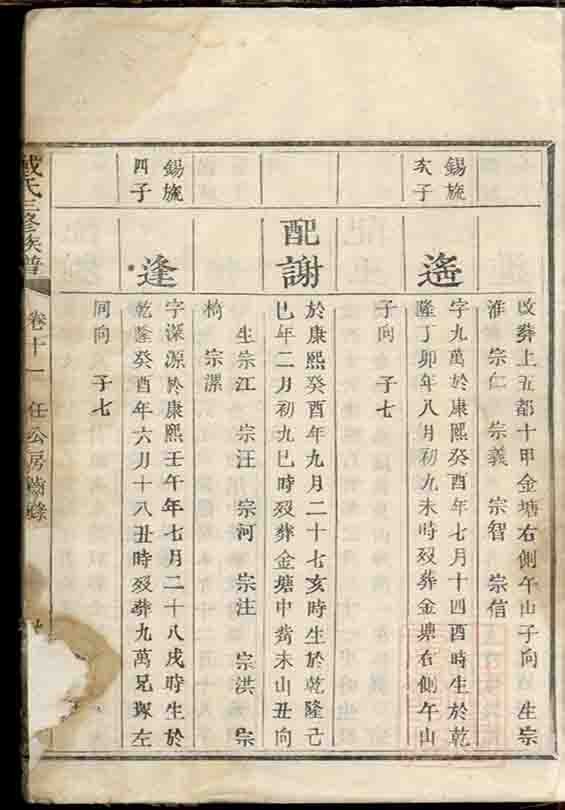 改葬上五都十甲金塘右側午山子向 生宗
淮 宗仁 宗義 宗智 宗信
錫旒
次子
遙
字九萬於康熙癸酉年七月十四酉時生於乾
隆丁卯年八月初九未時殁葬金塘右側午山
子向 子七
配謝
於康熙癸酉年九月二十七亥時生於乾隆己
巳年二月初九巳時殁葬金塘中嵛未山丑向
生宗江 宗汪 宗河 宗注 宗洪 宗
椅 宗漯
錫旒
四子
逢
字深源於康熙壬午年七月二十八戌時生於
乾隆癸酉年六月十八丑時殁葬九萬兄塚左
同向 子七
戴氏三修族譜
卷十一
任公房